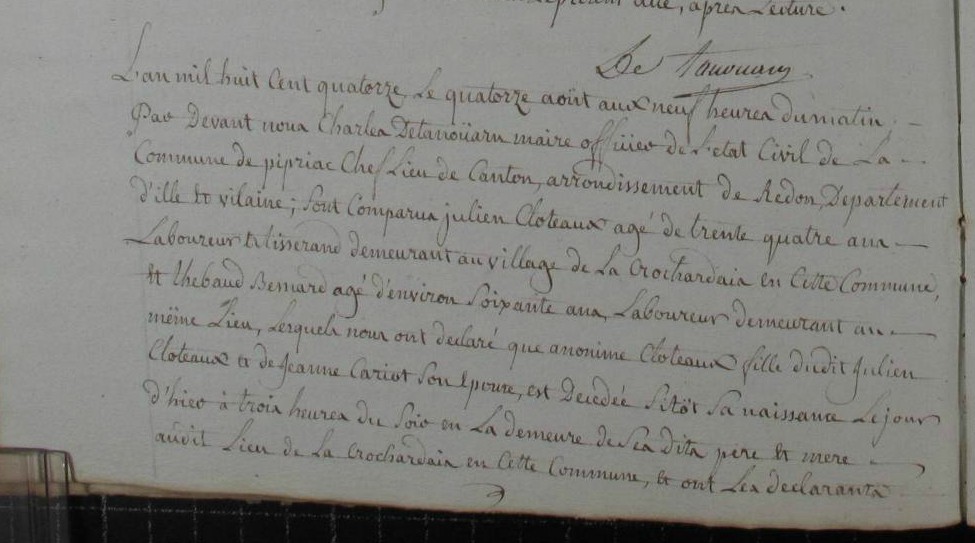 après Lecture.
De Tanouarn
L'an mil huit Cent quatorze, Le quatorze août aux neuf heures du matin, —
Par Devant nous Charles Detanoüarn maire officier de L'etat Civil de La —
Commune de pipriac Chef Lieu de Canton, arrondissement de Redon, Departement
d'ille et vilaine ; sont Comparus julien Cloteaux agé de trente quatre ans —
Laboureur et tisserand demeurant au village de La Crochardais en Cette Commune,
et thebaud Bemard agé d'environ Soixante ans, Laboureur demeurant au —
même Lieu, Lesquels nous ont declaré que anonime Cloteaux fille dudit Julien
Cloteaux et de Jeanne Cariot Son Epouse, est Decedée Sitôt Sa naissance Le jour
d'hier à trois heures du Soir en La demeure de Ses dits pere et mere —
audit Lieu de La Crochardais en Cette Commune, et ont Les declarants